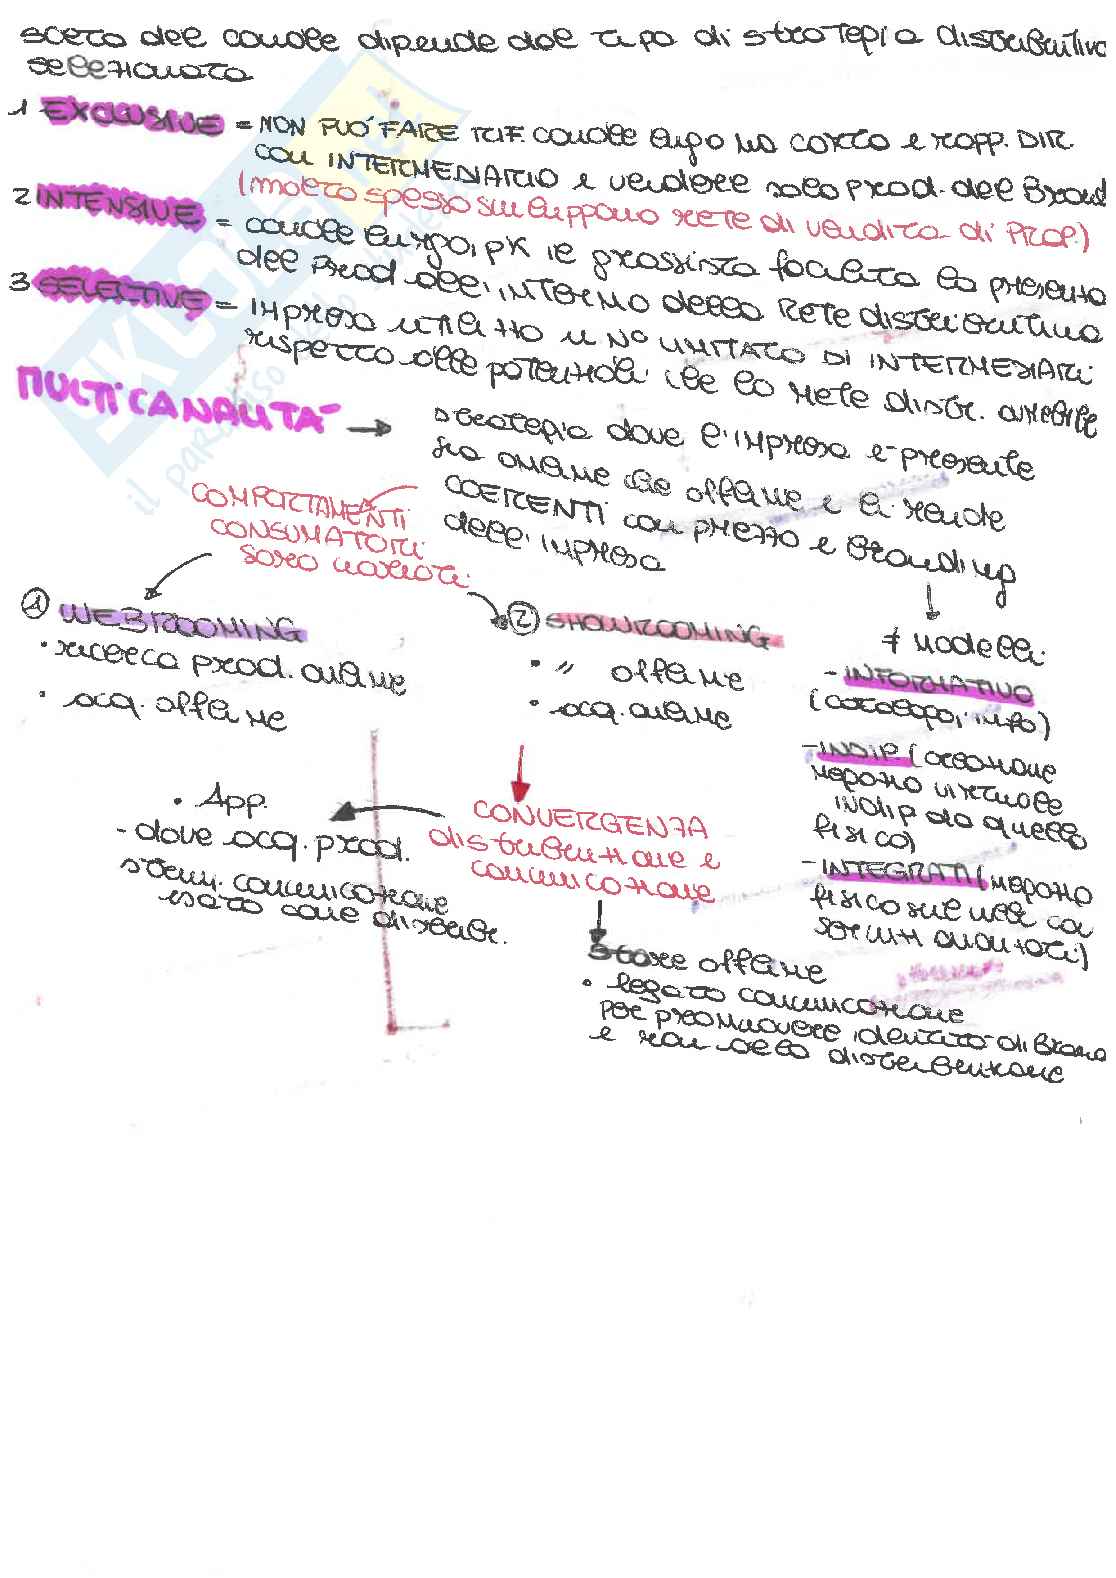 scelta del canale dipende dal tipo di strategia distributiva
selezionata
1 EXCLUSIVE = NON PUÒ FARE RIF. canale lungo ma corto e rapp. DIR.
con INTERMEDIARIO e vendere solo prod. del Brand
(molto spesso sviluppano rete di vendita di PROP.)
2 INTENSIVE = canale lungo, pk il grossista facilita la presenza
del prod. all'interno della rete distributiva
3 SELECTIVE = IMPRESA utilizza un N° LIMITATO DI INTERMEDIARI
rispetto alle potenziali che la rete distr. avrebbe
MULTICANALITÀ → strategia dove l'impresa è presente
sia online che offline e li rende
COERENTI con prezzo e branding
dell'impresa
COMPORTAMENTI
CONSUMATORI
sono variati
1 WEBROOMING
• ricerca prod. online
• acq. offline
2 SHOWROOMING
• " offline
• acq. online
≠ modelli
- INFORMATIVO
(catalogo, info)
- INDIP. (creazione
negozio virtuale
indip da quello
fisico)
- INTEGRATI (negozio
fisico sul web con
servizi avanzati)
CONVERGENZA
distribuzione e
comunicazione
• App.
- dove acq. prod.
strum. comunicazione
usato come distrib.
Store offline
• legato comunicazione
per promuovere identità di Brand
e non della distribuzione
SKUOLA.net
il paradiso dello studente